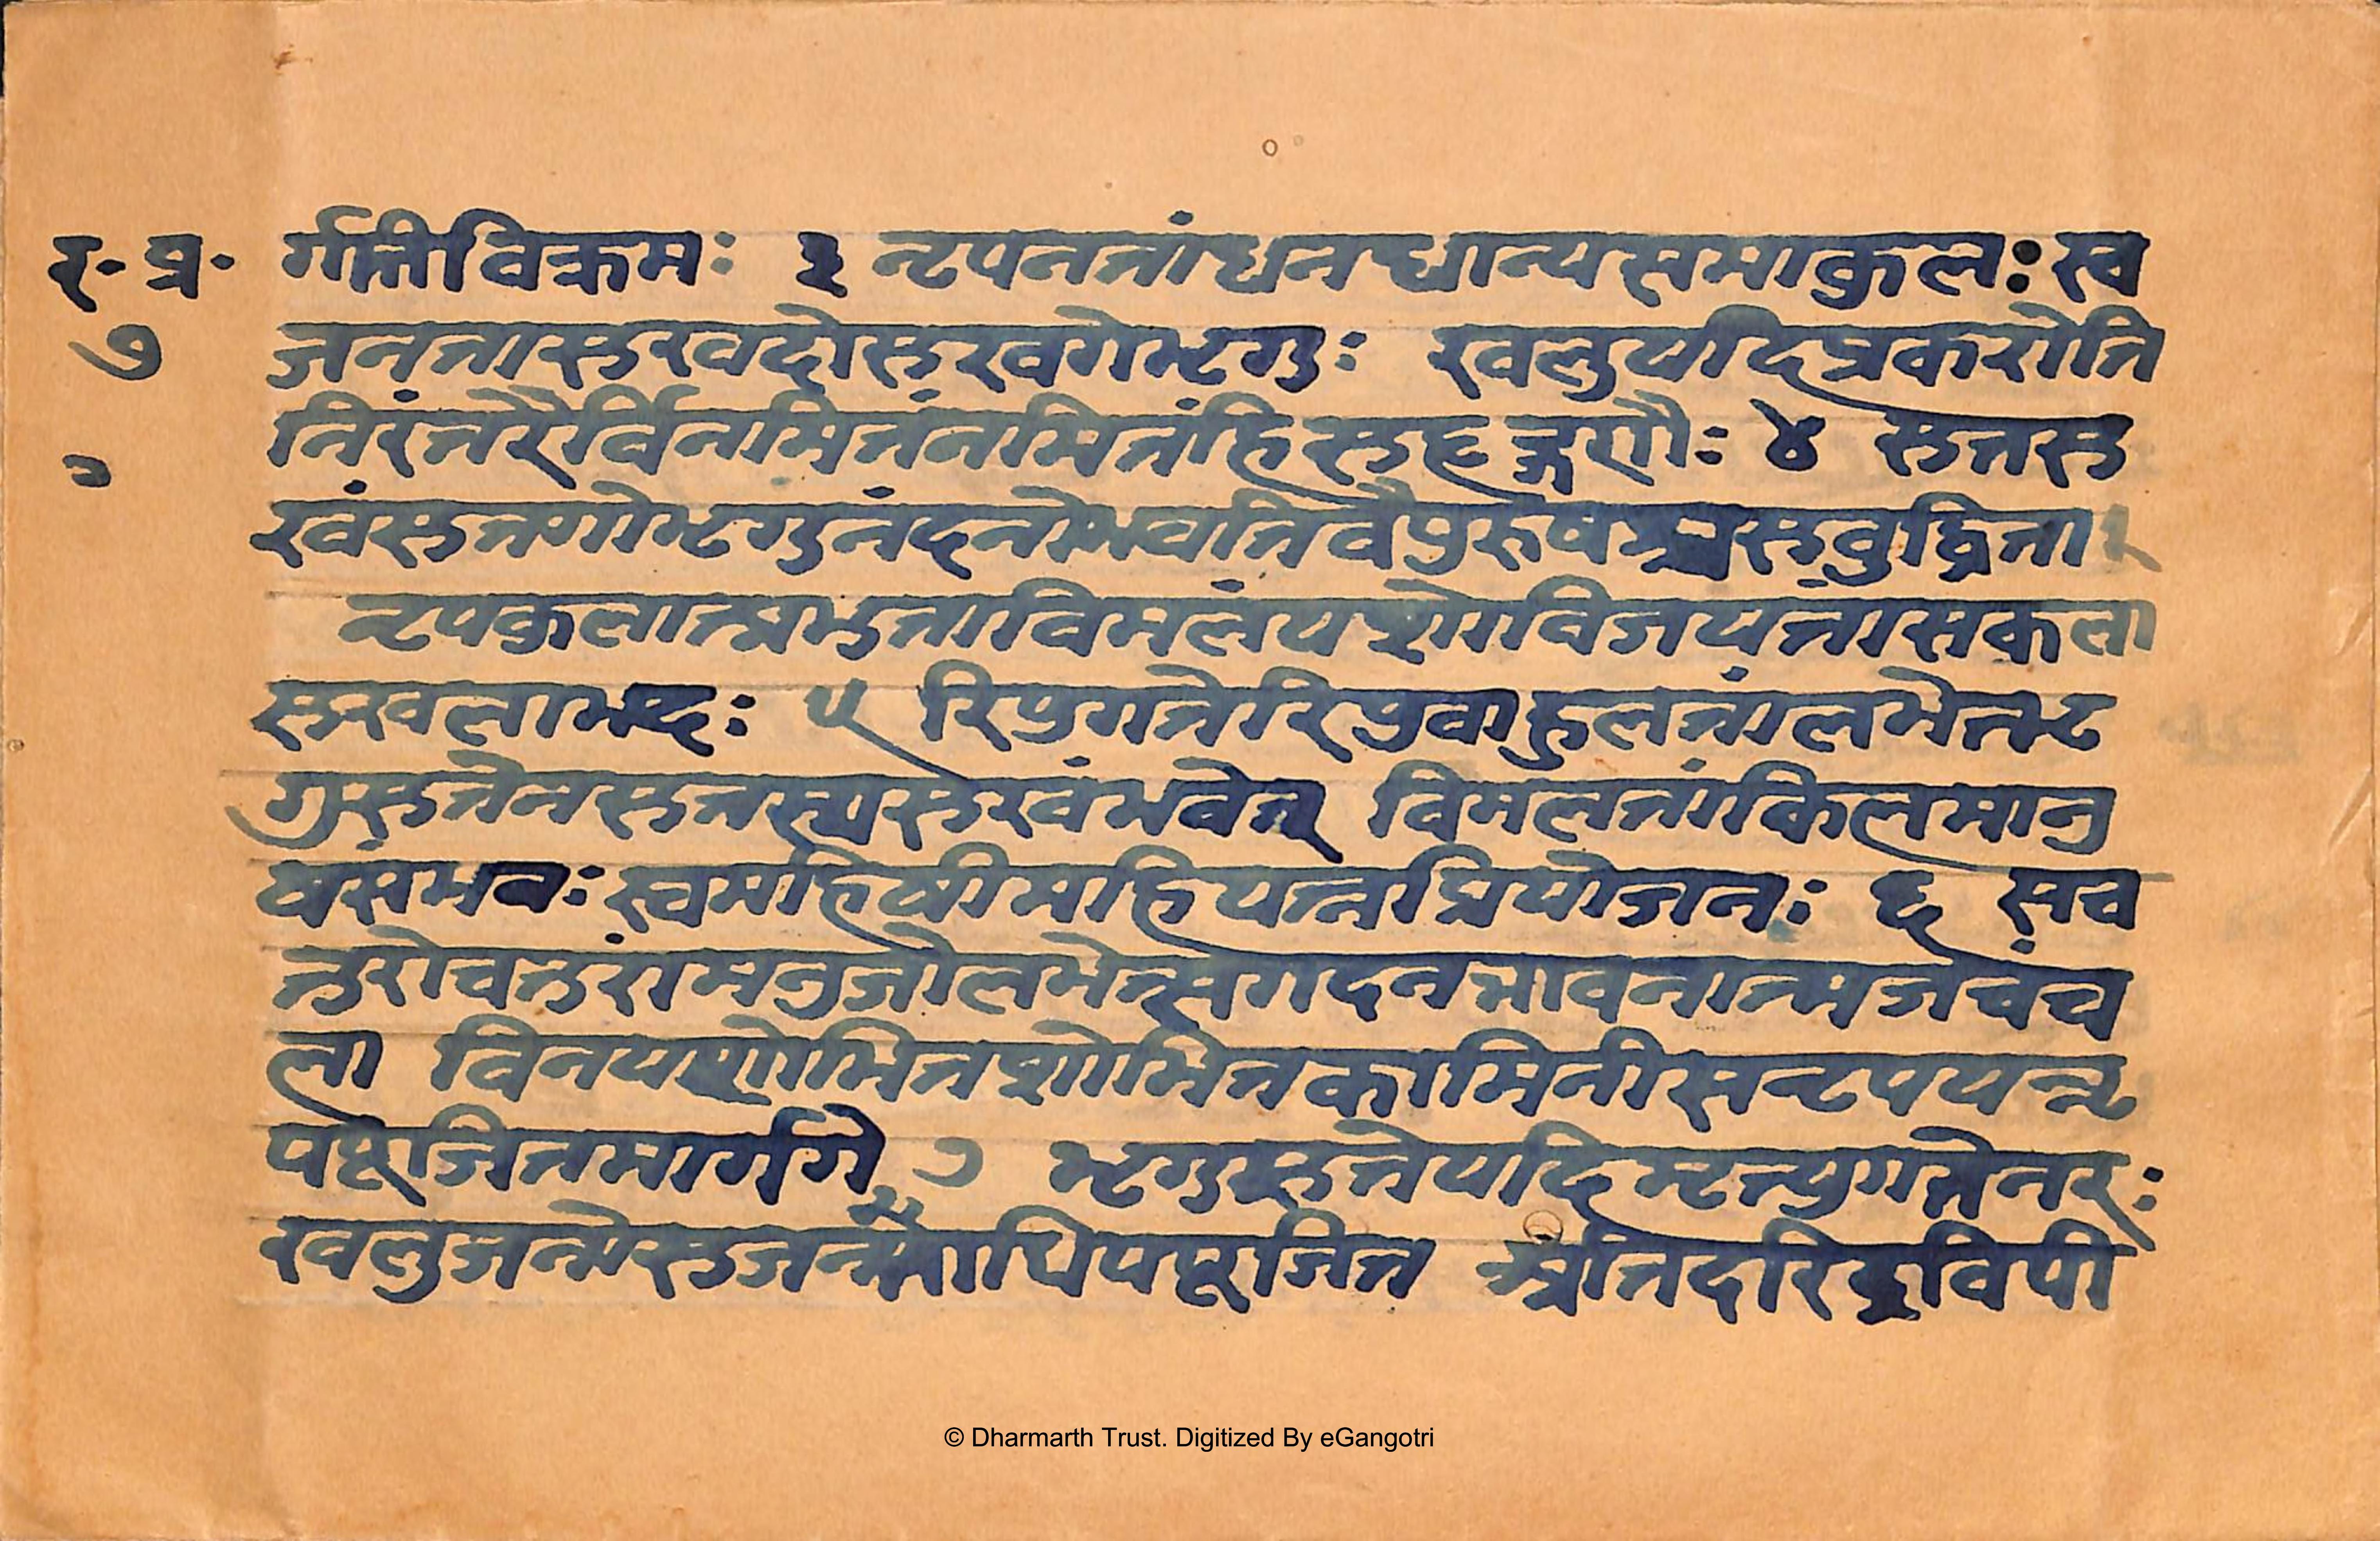 र॰ प्र॰
७
र्गतीविक्रमः ३ नृपनतांधनधान्यसमाकुलः स्व
जनतासुखदोसुखगेभृगुः खलुयदिप्रकरोति
तिरंतरैर्विनमितंनमितंहिसुहृद्गणैः ४ सुतसु
खंसुतगोभृगुनंदनोभवतिवैपुरुष सुबुद्धिता
नृपकुलात्प्रभुताविमलंयशोविजयतासकला
सुखलाभदः ५ रिपुगतेरिपुबाहुलतांलभेत्भृ
गुसुतेनसुतस्यसुखंभवेत् विमलतांकिलमानु
षसंभवः स्वमहिषीमहियत्नप्रियोजनः ६ सव
तुरोचतुरांमनुजोलभेत्सगदनभावनात्मजचंच
ला विनयशोभितशोभितकामिनीसनृपयत्नृ
पपूजितमार्गगे ७ भृगुसुतेयदिमृत्युगतेनरः
खलुजनोसुजन धिपपूजित दरिद्रविपी
© Dharmarth Trust. Digitized By eGangotri